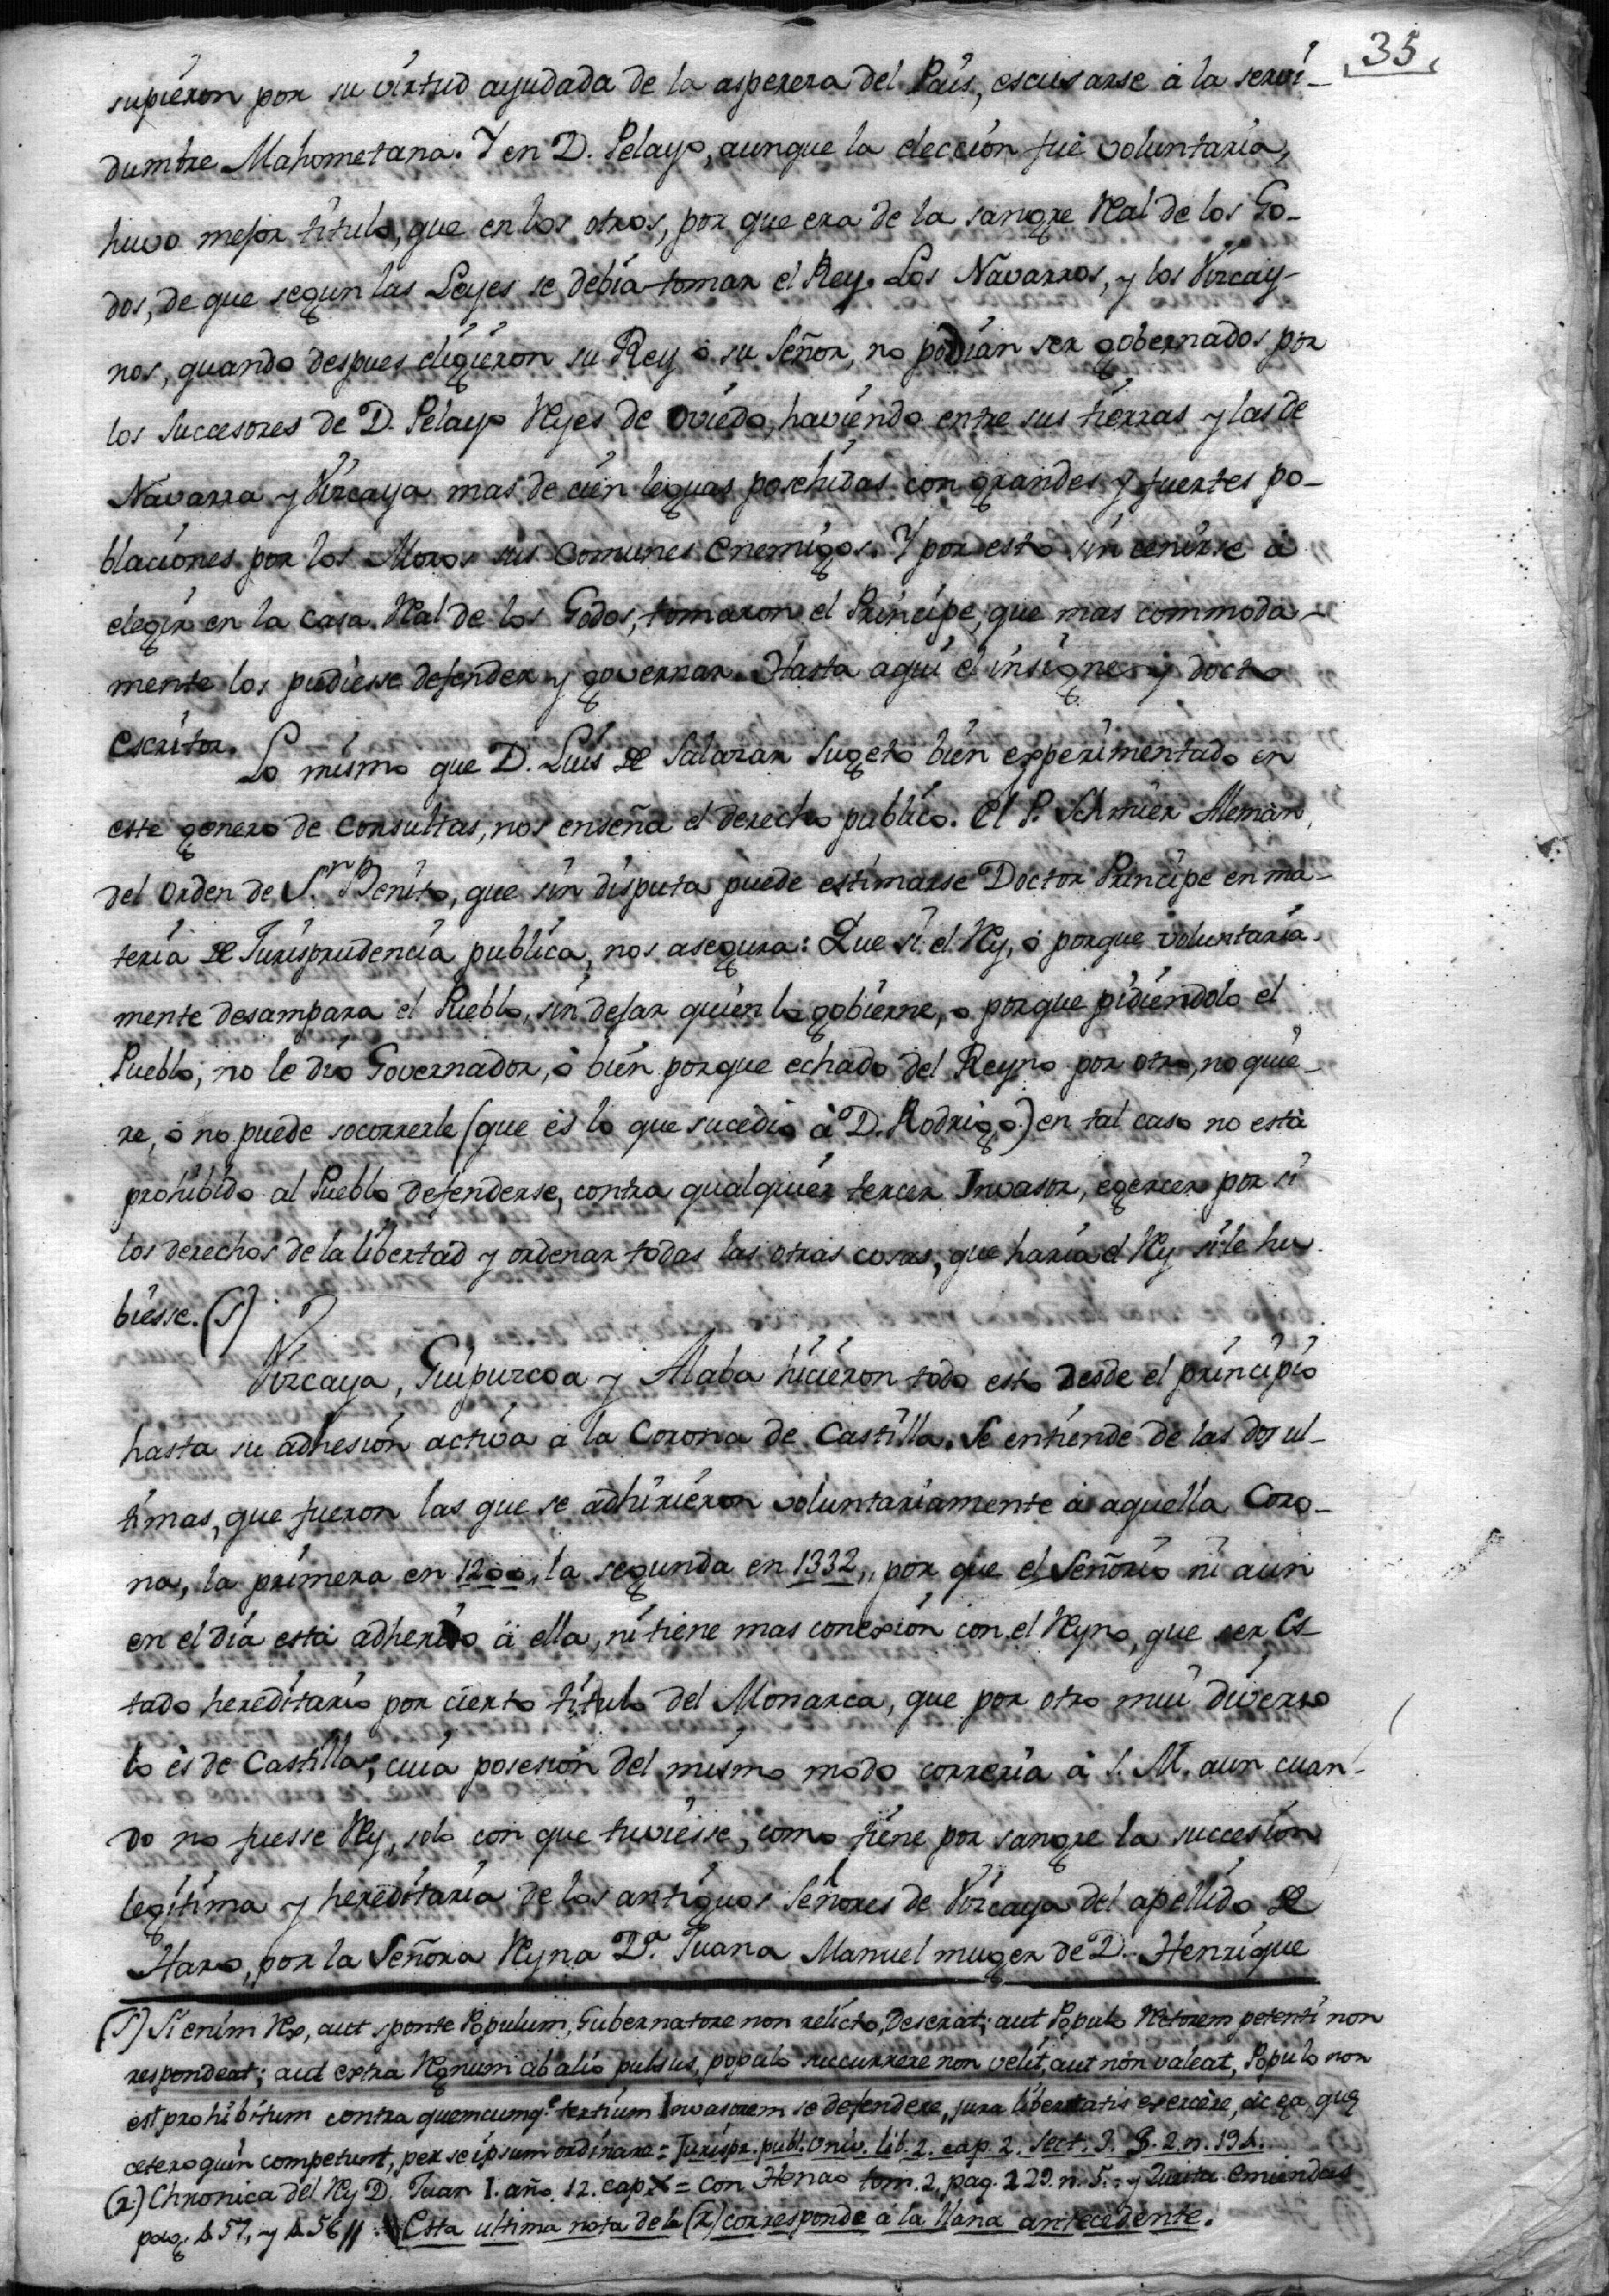 35
supieron por su virtud ayudada de la aspereza del Pais, escusarse à la servi-
dumbre Mahometana. Y en D. Pelayo, aunque la eleccion fue voluntaria,
huvo mejor titulo, que en los otros, por que era de la sangre Real de los Go-
dos, de que segun las Leyes se debia tomar el Rey. Los Navarros, y los Vizcay-
nos, quando despues eligieron su Rey ò su Señor, no podian ser gobernados por
los Succesores de D. Pelayo Reyes de Oviedo, haviendo entre sus tierras y las de
Navarra y Vizcaya mas de cien leguas posehidas con grandes y fuertes po-
blaciones por los Moros sus comunes Enemigos. Y por esto sin cenirse à
elegir en la Casa Real de los Godos, tomaron el Principe, que mas commoda-
mente los pudiesse defender y governar. Hasta aqui el insigne y docto
Escritor.
Lo mismo que D. Luis de Salazar Sugeto bien experimentado en
este genero de Consultas, nos enseña el derecho publico. El P. Schmier Aleman,
del Orden de S.n Benito, que sin disputa puede estimarse Doctor Principe en ma-
teria de Jurisprudencia publica, nos asegura: Que si el Rey, ò porque voluntaria-
mente desampara el Pueblo, sin dejar quien lo gobierne, o porque pidiendolo el
Pueblo, no le dio Governador, ò bien porque echado del Reyno por otro, no quie-
re, ò no puede socorrerle (que es lo que sucediò à D. Rodrigo) en tal caso no està
prohibido al Pueblo defenderse, contra qualquier tercer Invasor, egercer por si
los derechos de la libertad y ordenar todas las otras cosas, que haria el Rey si le hu-
biesse. (S)
Vizcaya, Guipuzcoa y Alaba hicieron todo esto desde el principio
hasta su adhesion activa à la Corona de Castilla. Se entiende de las dos ul-
timas, que fueron las que se adhirieron voluntariamente à aquella Coro-
na, la primera en 1200,, la segunda en 1332,, por que el Señorio ni aun
en el dia està adherido à ella, ni tiene mas conexion con el Reyno, que ser Es-
tado hereditario por cierto titulo del Monarca, que por otro mui diverso
lo es de Castilla; cuia posesion del mismo modo correria à S. M. aun cuan-
do no fuesse Rey, solo con que tuviesse, como tiene por sangre la succesion
legitima y hereditaria de los antiguos Señores de Vizcaya del apellido de
Haro, por la Señora Reyna D.a Juana Manuel muger de D. Henrique
(S) Si enim Rex, aut sponte Populum, Gubernatore non relicto, deserat; aut Populo Rectorem petenti non
respondeat; aut extra Regnum ab alio pulsus, populo succurrere non velit, aut non valeat, Populo non
est prohibitum contra quemcumq.e tertium Invasorem se defendere, jura libertatis exercère, ac ea, que
ceteroquin competunt, per se ipsum ordinare = Jurispr. publ. Univ. lib. 2. cap. 2. Sect. 3. §. 2. n. 194.
(z) Chronica del Rey D. Juan I. año 12. cap. = Con Henao tom. 2, pag. 229. n. 5. y Zurita Emiendas
pag. 257, y 256 // Esta ultima nota de la (z) corresponde à la Plana antecedente.